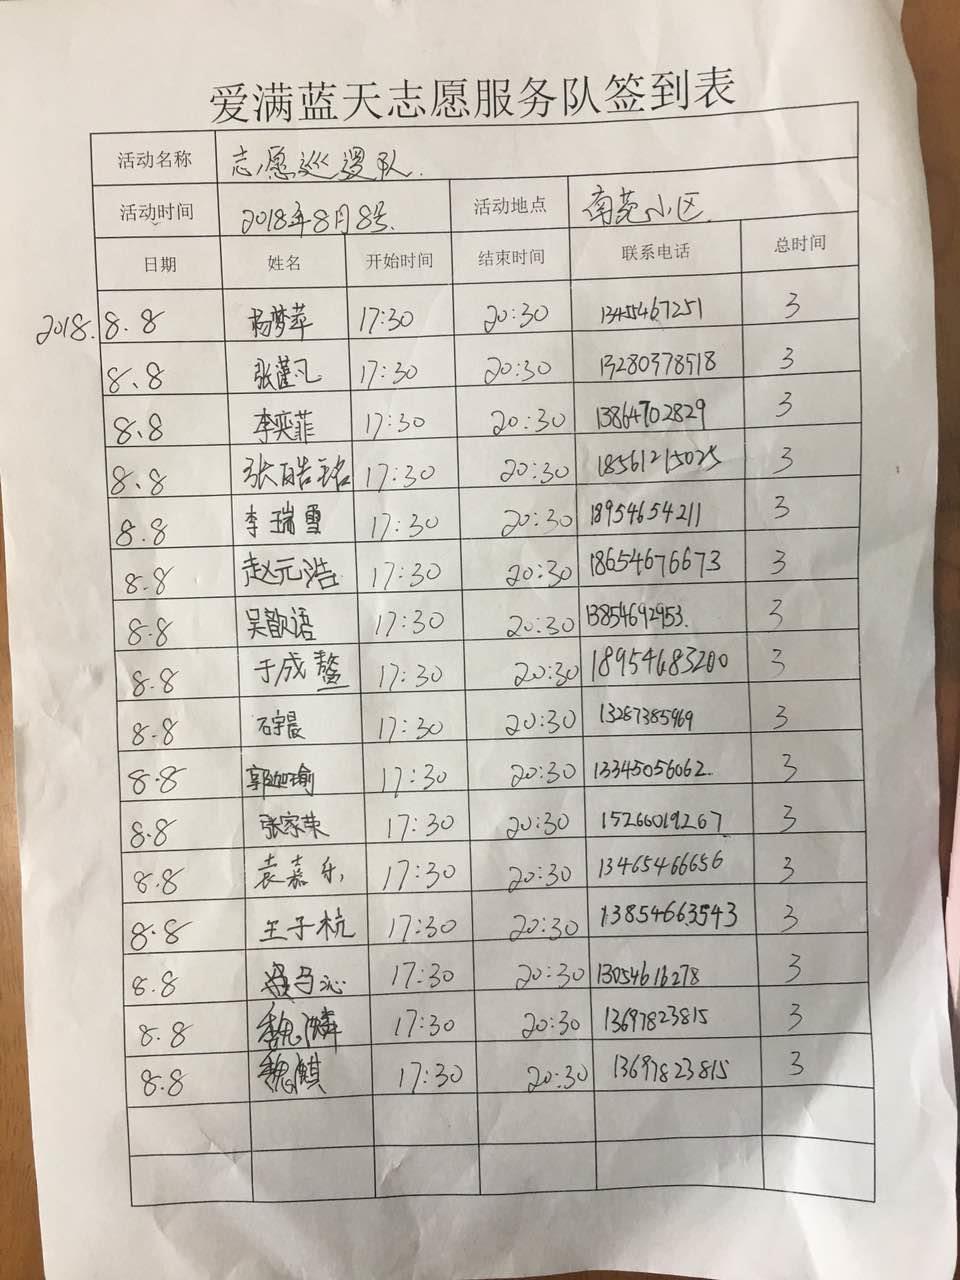 爱满蓝天志愿服务队签到表
活动名称 志愿巡逻队.
活动时间 2018年8月8号. 活动地点 南苑小区.
日期 姓名 开始时间 结束时间 联系电话 总时间
2018. 8.8 杨梦苹 17:30 20:30 13455467251 3
8.8 张蓬凡 17:30 20:30 13280378518 3
8.8 李奕菲 17:30 20:30 13864702829 3
8.8 张皓铭 17:30 20:30 18561215025 3
8.8 李瑞雪 17:30 20:30 18954654211 3
8.8 赵元浩 17:30 20:30 18654676673 3
8.8 吴歆语 17:30 20:30 13854692953. 3
8.8 于成鳌 17:30 20:30 18954683200 3
8.8 石宇晨 17:30 20:30 13287385969 3
8.8 郭迦瑜 17:30 20:30 13345056062. 3
8.8 张家荣 17:30 20:30 15266019267 3
8.8 袁嘉乐 17:30 20:30 13465466656 3
8.8 王子杭 17:30 20:30 13854663543 3
8.8 17:30 20:30 13054616278 3
8.8 魏潾 17:30 20:30 13697823815 3
8.8 17:30 20:30 13697823815 3